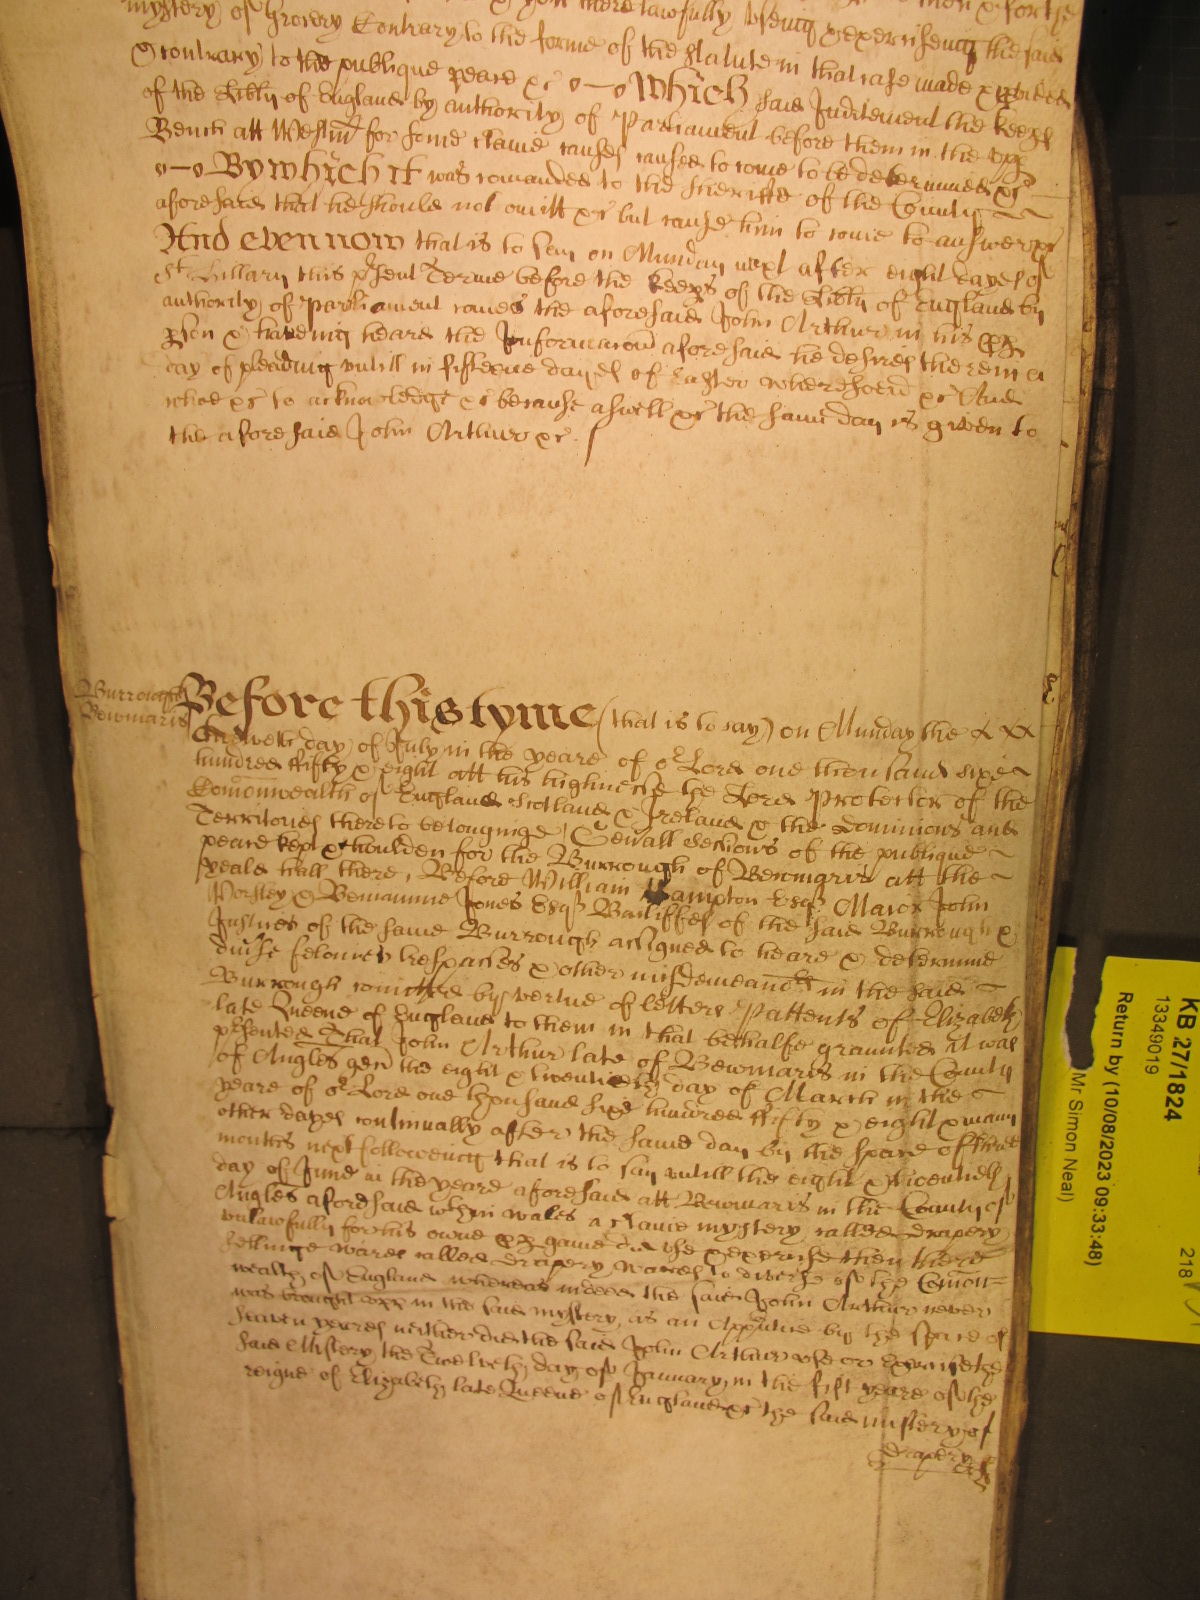 mystery of Grocery Contrary to the forme of the statute in that case made & provided
& contrary to the publique peace &c o—o Which said Inditement the keeps
of the Libty of England by authority of Parliament before them in the upp
Bench att Westmr for some certaine causes caused to come to be determined &c
o—o By which it was comanded to the Sheriffe of the County
aforesaid that he should not omitt &c but cause him to come to answer &c
And even now that is to say on Munday next after eight dayes of
St Hillary this psent Terme before the keeps of the Libty of England by
authority of Parliament comes the aforesaid John Arthur in his pp
pson & haveing heard the Informacon aforesaid he desires therein a
day of pleading untill in fifteene dayes of Easter wheresoevr &c And
whoe &c to acknowledge &c because aswell &c the same day is given to
the aforesaid John Arthur &c
Burrough
Bewmaris
Before this tyme (that is to say) on Munday the
day of July in the yeare of or Lord one thousand sixe
hundred fifty & eight att his highnesse the Lord Protector of the
Comonwealth of England Scotland & Ireland & the Dominions and
Territories thereto belonginge Genrall Sessions of the publique
peace kept & houlden for the Burrough of Bewmaris att the
hall there, Before William Hampton Esqr Maior John
& Beniamine Jones Esqs Bailiffes of the said Burrough &
Justices of the same Burrough assigned to heare & determine
divse felonies trespasses & other misdemeanors in the said
Burrough comitted by vertue of letters Pattents of Elizabeth
late Queene of England to them in that behalfe graunted it was
psented That John Arthur late of Bewmaris in the County
of Angles gen the eight & twentieth day of March in the
yeare of or Lord one thousand sixe hundred fifty & eight & many
other dayes continually after the same day by the space of three
months next followeing that is to say untill the eight & twentieth
day of June in the yeare aforesaid att Bewmaris in the County of
Angles aforesaid wthin wales a certaine mystery called Drapery
unlawfully for his owne pp gaine did use & exercise then there
sellinge wares called Drapery wares to diverse of the Comon=
wealth of England whereas indeed the said John Arthur never
was brought upp in the said mystery, as an Apprntice by the space of
seaven yeares neither did the said John Arthur use or exercise the
said Mistery the Twelveth day of January in the fift yeare of the
reigne of Elizabeth late Queene of England &c the said mistery of
Drapery
KB 27/1824
13349019
Return by (10/08/2023 09:33:48)
Mr Simon Neal)
218